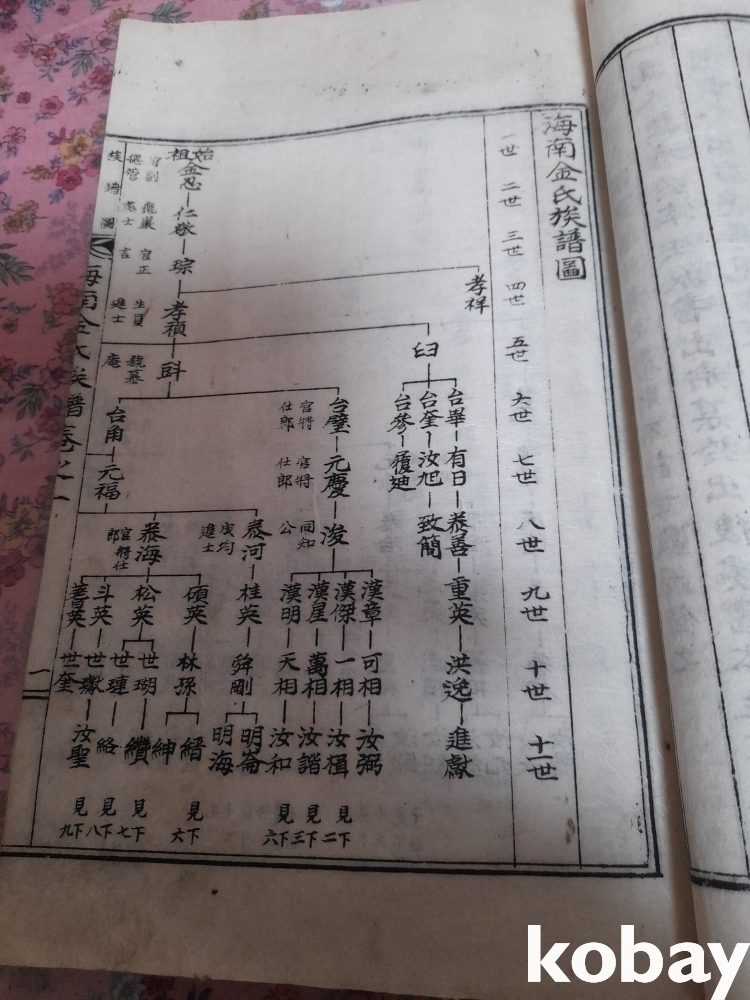 海南金氏族譜圖
一世
二世
三世
四世
五世
六世
七世
八世
九世
十世
十一世
始祖
金忍
仁敬
琮
孝祥
孝禎
臼
台畢
有日
泰善
重英
洪逸
進獻
台奎
汝旭
致簡
台參
台璧
官將仕郎
元慶
官將仕郎
浚
同知公
漢章
可相
汝弼
漢傑
一相
汝楫
見下二
漢星
萬相
汝諧
見下三
漢明
天相
汝和
見下六
台角
元福
泰河
桂英
舜剛
明崙
明海
泰海
官將仕郎
碩英
林孫
縉
紳
見下六
松英
世瑚
世璉
纘
見下七
斗英
世獻
絡
見下八
世奎
汝聖
見下九
生員
進士
海南金氏族譜卷之一
kobay